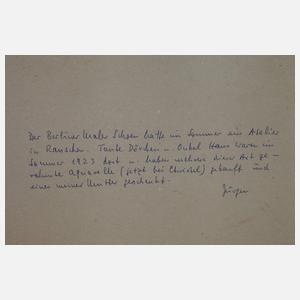 Der Berliner Maler Schoen hatte im Sommer ein Atelier
in Rauschen. Tante Dörchen u. Onkel Hans waren im
Sommer 1923 dort u. haben mehrere dieser Art ge-
rahmte Aquarelle (jetzt bei Christel) gekauft und
eines meiner Mutter geschenkt.
Jürgen